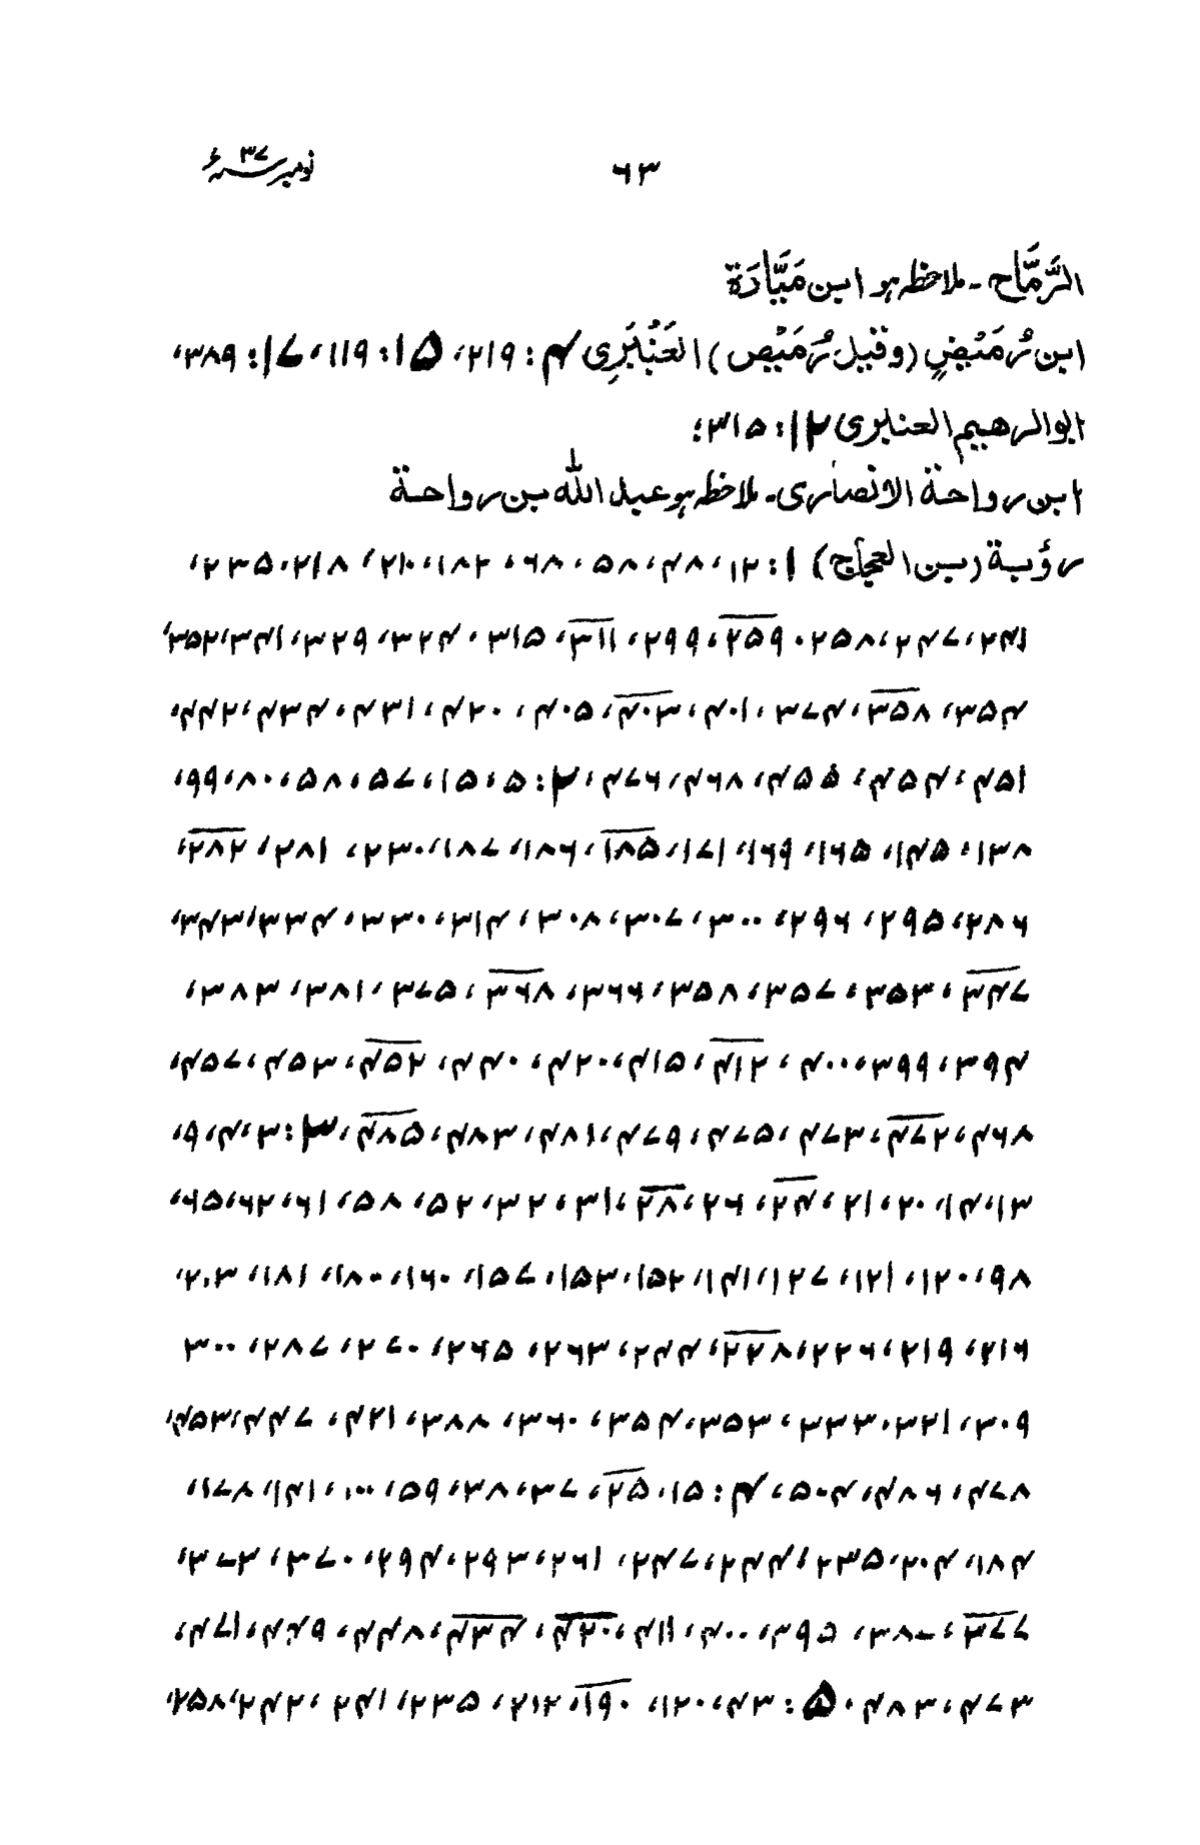 ۶۳ نومبر سنہ ۳۷ء
الرَّمَّاح - ملاحظہ ہو ابن مَيَّادَة
ابن رُمَيْضٍ (وقيل رُمَيْص) العَنْبَرِی ۴: ۲۱۹، ۱۵: ۱۱۹، ۱۷: ۳۸۹،
ابو الرهيم العنبری ۱۲: ۳۱۵؛
ابن رواحة الانصاری - ملاحظہ ہو عبد الله بن رواحة
رؤبة (بن العجاج) ۱: ۱۲، ۴۸، ۵۸، ۶۸، ۱۸۲، ۲۱۰، ۲۱۸، ۲۳۵،
۲۴۱، ۲۴۷، ۲۵۸، ۲۵۹، ۲۹۹، ۳۱۱، ۳۱۵، ۳۲۴، ۳۲۹، ۳۴۱، ۳۵۲،
۳۵۴، ۳۵۸، ۳۷۴، ۴۰۱، ۴۰۳، ۴۰۵، ۴۲۰، ۴۳۱، ۴۳۴، ۴۴۲،
۴۵۱، ۴۵۴، ۴۵۵، ۴۶۸، ۴۷۶، ۲: ۵، ۱۵، ۵۷، ۵۸، ۸۰، ۹۹،
۱۳۸، ۱۴۵، ۱۶۵، ۱۶۹، ۱۷۱، ۱۸۵، ۱۸۶، ۱۸۷، ۲۳۰، ۲۸۱، ۲۸۲،
۲۸۶، ۲۹۵، ۲۹۶، ۳۰۰، ۳۰۷، ۳۰۸، ۳۱۴، ۳۳۰، ۳۳۴، ۳۴۳،
۳۴۷، ۳۵۳، ۳۵۷، ۳۵۸، ۳۶۶، ۳۶۸، ۳۷۵، ۳۸۱، ۳۸۳،
۳۹۴، ۳۹۹، ۴۰۰، ۴۱۲، ۴۱۵، ۴۲۰، ۴۴۰، ۴۵۲، ۴۵۳، ۴۵۷،
۴۶۸، ۴۷۲، ۴۷۳، ۴۷۵، ۴۷۹، ۴۸۱، ۴۸۳، ۴۸۵، ۳: ۳، ۴، ۹،
۱۳، ۱۴، ۲۰، ۲۱، ۲۴، ۲۶، ۲۸، ۳۱، ۳۲، ۵۲، ۵۸، ۶۱، ۶۲، ۶۵،
۹۸، ۱۲۰، ۱۲۱، ۱۲۷، ۱۴۱، ۱۵۲، ۱۵۳، ۱۵۷، ۱۶۰، ۱۸۰، ۱۸۱، ۲۰۳،
۲۱۶، ۲۱۹، ۲۲۶، ۲۲۸، ۲۴۴، ۲۶۳، ۲۶۵، ۲۷۰، ۲۸۷، ۳۰۰
۳۰۹، ۳۲۱، ۳۳۳، ۳۵۳، ۳۵۴، ۳۶۰، ۳۸۸، ۴۲۱، ۴۴۷، ۴۵۳،
۴۷۸، ۴۸۶، ۵۰۴، ۴: ۱۵، ۲۵، ۳۷، ۳۸، ۵۹، ۱۰۰، ۱۴۱، ۱۷۸،
۱۸۴، ۲۰۴، ۲۳۵، ۲۴۴، ۲۴۷، ۲۶۱، ۲۹۳، ۲۹۴، ۳۷۰،
۳۷۷، ۳۹۵، ۴۰۰، ۴۱۱، ۴۲۰، ۴۳۴، ۴۴۸، ۴۴۹، ۴۷۱،
۴۷۳، ۴۸۳، ۵: ۴۳، ۱۲۰، ۱۹۰، ۲۱۲، ۲۳۵، ۲۴۱، ۲۴۲، ۲۵۸،